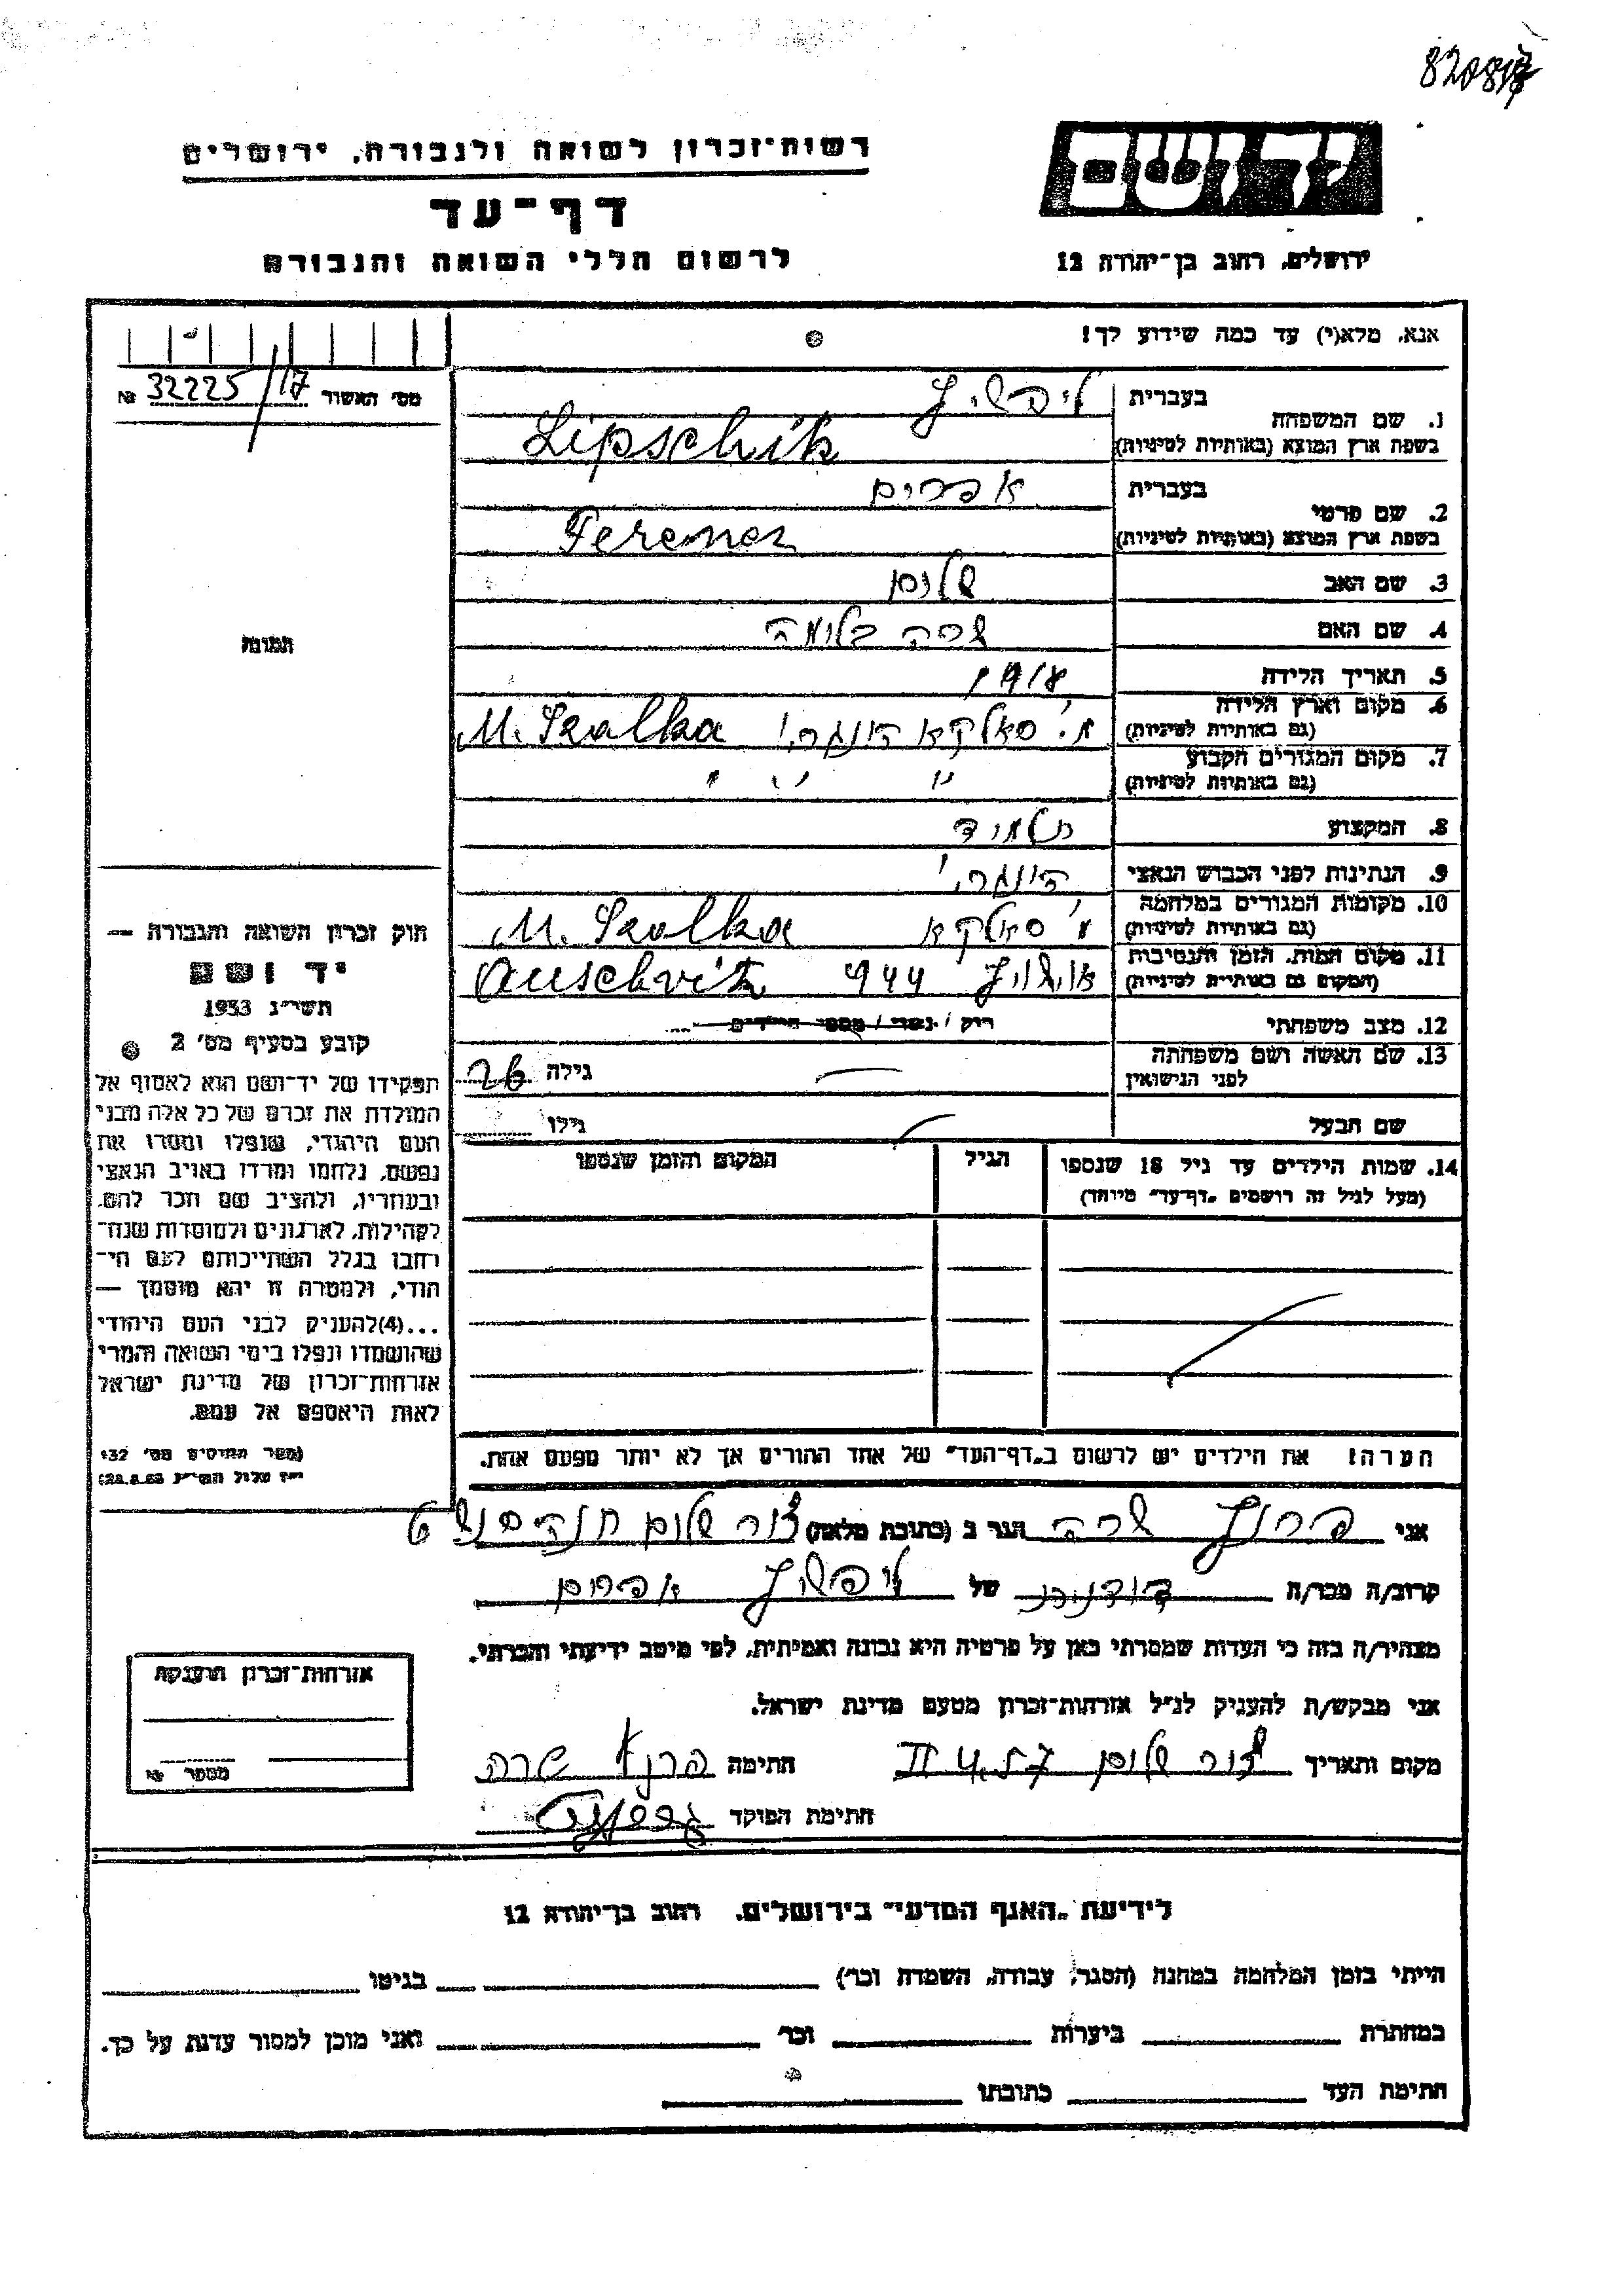 820817
יד ושם
רשות-זכרון לשואה ולגבורה, ירושלים
דף-עד
לרשום חללי השואה והגבורה
ירושלים, רחוב בן-יהודה 12
אנא, מלא(י) עד כמה שידוע לך!
מס' האשור № 32225/17
1. שם המשפחה
בעברית
ליפשיץ
בשפת ארץ המוצא (באותיות לטיניות)
Lipschik
2. שם פרטי
בעברית
אפרים
בשפת ארץ המוצא (באותיות לטיניות)
Ferencz
3. שם האב שלום
4. שם האם שרה בלומה
5. תאריך הלידה 1918
6. מקום וארץ הלידה
(גם באותיות לטיניות)
מ. סאלקא הונגרי M. Szalka
7. מקום המגורים הקבוע
(גם באותיות לטיניות)
" " "
8. המקצוע תלמיד
9. הנתינות לפני הכבוש הנאצי הונגרי
10. מקומות המגורים במלחמה
(גם באותיות לטיניות)
מ' סאלקא M. Szalka
11. מקום המות, הזמן והנסיבות
(המקום גם באותיות לטיניות)
אושויץ 944 Auschvitz
12. מצב משפחתי רוק / נשוי / מספר הילדים
13. שם האשה ושם משפחתה
לפני הנישואין
גילה 26
שם הבעל גילו
14. שמות הילדים עד גיל 18 שנספו
(מעל לגיל זה רושמים "דף-עד" מיוחד)
הגיל
המקום והזמן שנספו
הערה! את הילדים יש לרשום ב"דף-העד" של אחד ההורים אך לא יותר מפעם אחת.
תמונה
חוק זכרון השואה והגבורה —
יד ושם
תשי"ג 1953
קובע בסעיף מס' 2
תפקידו של יד-ושם הוא לאסוף אל
המולדת את זכרם של כל אלה מבני
העם היהודי, שנפלו ומסרו את
נפשם, נלחמו ומרדו באויב הנאצי
ובעוזריו, ולהציב שם וזכר להם,
לקהילות, לארגונים ולמוסדות שנח-
רבו בגלל השתייכותם לעם הי-
הודי, ולמטרה זו יהא מוסמך —
...(4)להעניק לבני העם היהודי
שהושמדו ונפלו בימי השואה והמרי
אזרחות-זכרון של מדינת ישראל
לאות היאספם אל עמם.
(ספר החוקים מס' 132
י"ז אלול תשי"ג 28.8.53)
אני שרה הגר ב (כתובת מלאה) צור שלום
קרוב/ה מכר/ה של ליפשיץ אפרים
מצהיר/ה בזה כי העדות שמסרתי כאן על פרטיה היא נכונה ואמיתית, לפי מיטב ידיעתי והכרתי.
אני מבקש/ת להעניק לנ"ל אזרחות-זכרון מטעם מדינת ישראל.
מקום ותאריך צור שלום חתימה שרה
חתימת הפוקד
אזרחות-זכרון הוענקה
מספר №
לידיעת "האגף המדעי" בירושלים, רחוב בן-יהודה 12
הייתי בזמן המלחמה במחנה (הסגר, עבודה, השמדה וכו') בגיטו
במחתרת ביערות וכו' ואני מוכן למסור עדות על כך.
חתימת העד כתובתו